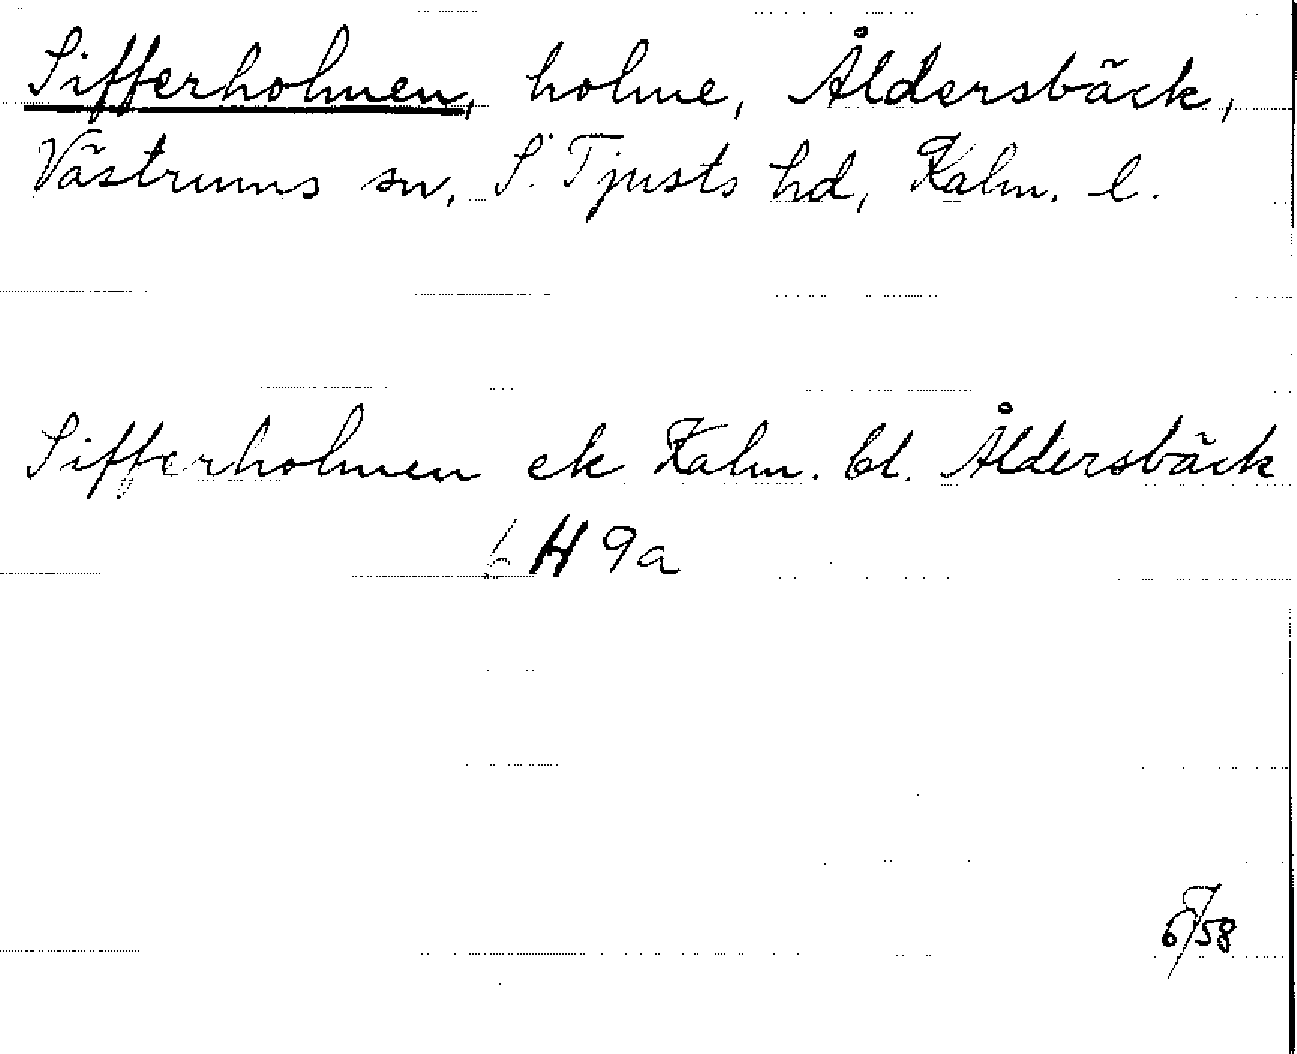 Sifferholmen, holme, Åldersbäck,
Västrums sn, S. Tjusts hd, Kalm. l.
Sifferholmen ek Kalm. bl. Åldersbäck
6 H 9a
6/58